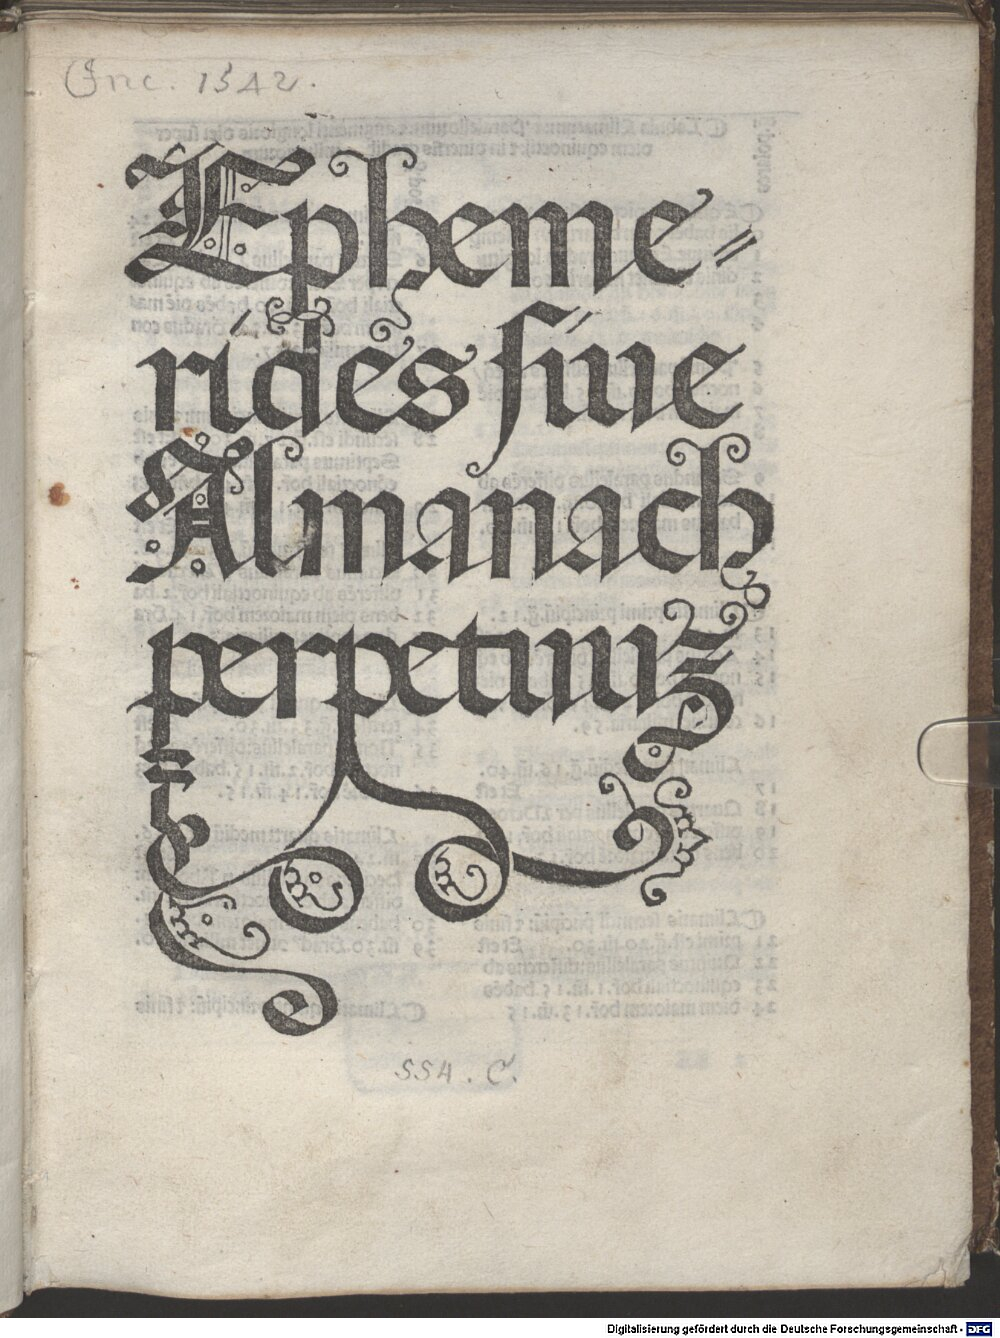 Inc. 1542.
Epheme⸗
rides siue
Almanach
perpetuuz
554. C.
Digitalisierung gefördert durch die Deutsche Forschungsgemeinschaft - DFG